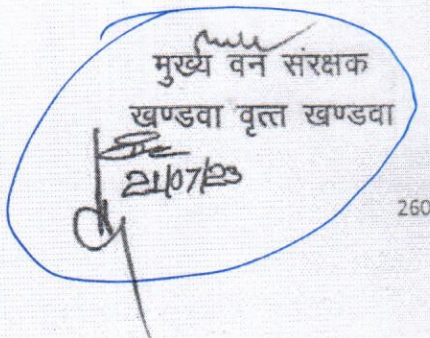 मुख्य वन संरक्षक
खण्डवा वृत्त खण्डवा
21/07/23
260